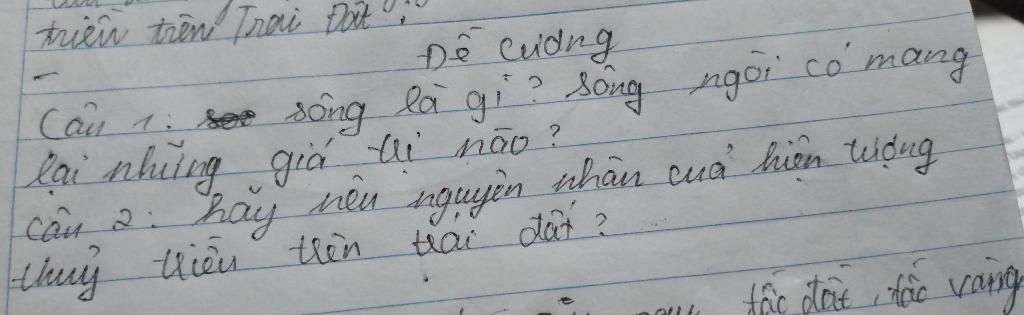 triều trên Trái Đất.
Đề cương
-
Câu 1: sông là gì? sông ngòi có mang
lại những giá trị nào?
câu 2: hãy nêu nguyên nhân cuả hiện tượng
thuỷ triều trên trái đất?
tấc đất, tấc vàng